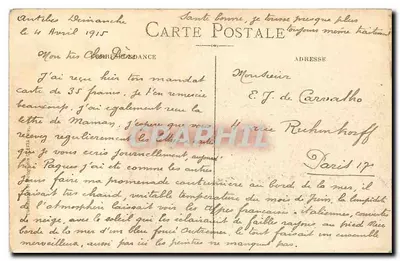 Antibes Dimanche
le 4 Avril 1915
Santé bonne, je tousse presque plus
toujours même traitement
CARTE POSTALE
CORRESPONDANCE
ADRESSE
Mon très Cher Père
J'ai reçu hier ton mandat
carte de 35 francs, je t'en remercie
beaucoup, j'ai également reçu la
lettre de Maman, j'espère que vous
recevez regulierement les
que je vous écris journellement aujour
hui Paques j'ai été comme les autres
jours faire ma promenade coutumière au bord de la mer, il
faisait très chaud, veritable température du mois de juin, la limpidité
de l'atmosphère laissait voir les alpes françaises & italiennes, couvertes
de neige, avec le soleil qui les éclairait de faibles rayons, au pied
borde de la mer d'un bleu foncé Outremer, le tout faisait un ensemble
merveilleux, aussi par ici les peintres ne manquent pas.
Monsieur
E. J. de Carvalho
11 rue Ruhmkorff
Paris 17e